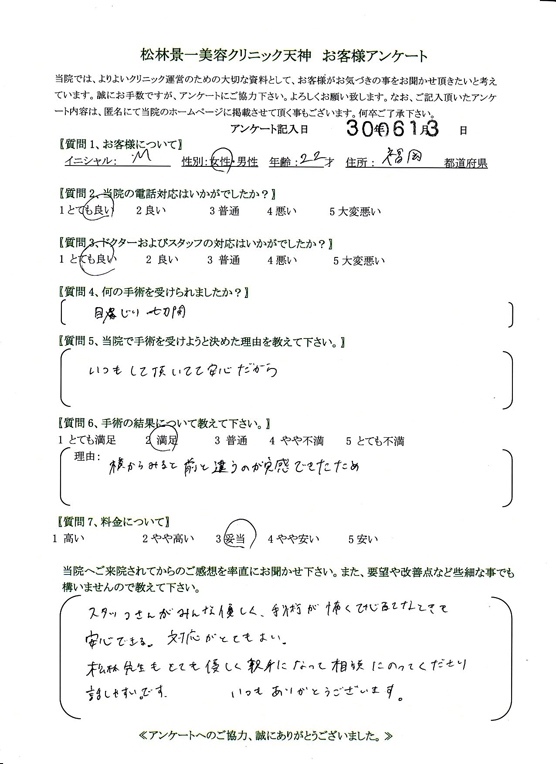 松林景一美容クリニック天神 お客様アンケート
当院では、よりよいクリニック運営のための大切な資料として、お客様がお気づきの事をお聞かせ頂きたいと考え
ています。誠にお手数ですが、アンケートにご協力下さい。よろしくお願い致します。なお、ご記入頂いたアンケ
ート内容は、匿名にて当院のホームページに掲載させて頂く事もございます。何卒ご了承下さい。
アンケート記入日 30年61月3 日
〖質問1、お客様について〗
イニシャル: M 性別:女性・男性 年齢:22才 住所: 福岡 都道府県
〖質問2、当院の電話対応はいかがでしたか?〗
1とても良い 2良い 3普通 4悪い 5大変悪い
〖質問3、ドクターおよびスタッフの対応はいかがでしたか?〗
1とても良い 2 良い 3 普通 4悪い 5大変悪い
〖質問4、何の手術を受けられましたか?〗
目尻じり 切開
〖質問5、当院で手術を受けようと決めた理由を教えて下さい。〗
いつもして頂いてて安心だから
〖質問6、手術の結果について教えて下さい。〗
1とても満足 2 満足 3 普通 4 やや不満 5 とても不満
理由:
横からみると前と違うのが実感できたため
〖質問7、料金について〗
1 高い 2 やや高い 3 妥当 4やや安い 5安い
当院へご来院されてからのご感想を率直にお聞かせ下さい。また、要望や改善点など些細な事でも
構いませんので教えて下さい。
スタッフさんがみんな優しく、手術が怖くて
安心できる。 対応がとてもよい。
松林先生もとても優しく親身になって相談にのってくださり
話しやすいです。 いつもありがとうございます。
≪アンケートへのご協力、誠にありがとうございました。≫